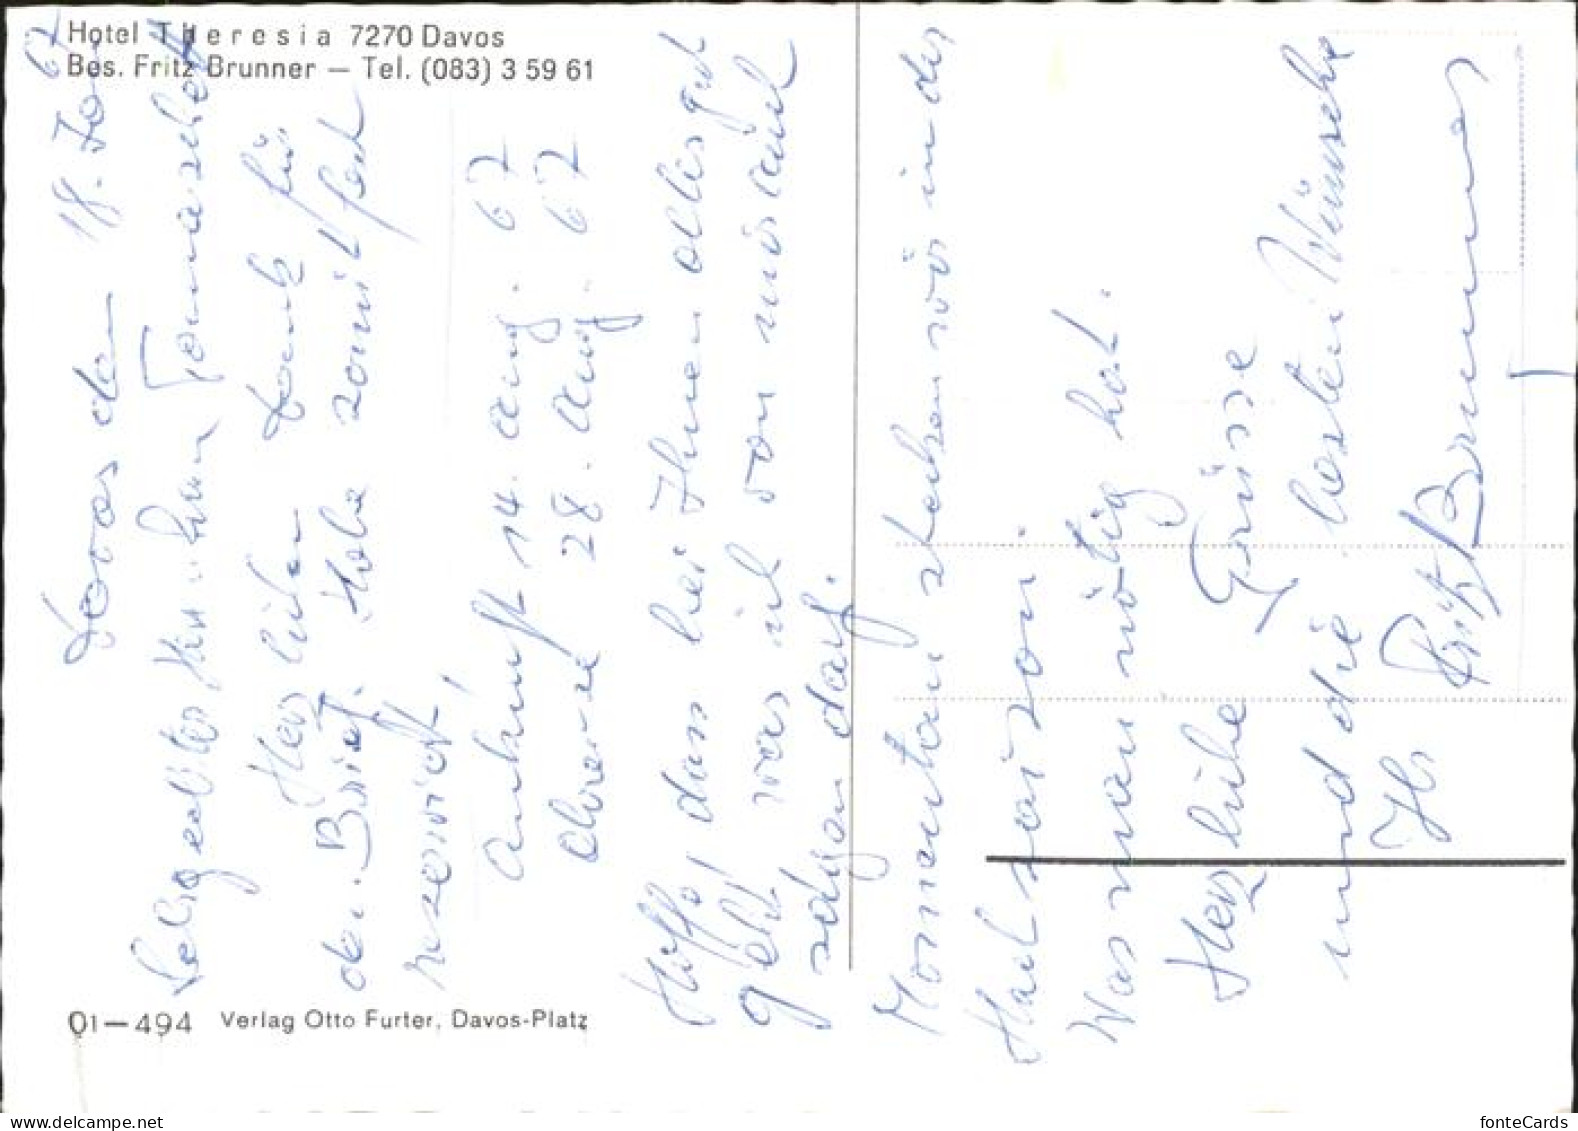 Hotel Theresia 7270 Davos
Bes. Fritz Brunner — Tel. (083) 3 59 61
Davos den 18. Jan 67
Sehrgeehrter Herr
Herzlichen Dank für
den Brief. Habe somit fest
reserviert,
Ankunft 14. Aug. 67
Abreise 28. Aug. 67
Hoffe dass bei Ihnen alles gut
geht! was ich von mir auch
sagen darf.
Momentan stehen wir in der
Hauptsaison.
Was man nötig hat.
Herzliche Grüsse
und die besten Wünsche
Ihr Fritz Brunner
01—494 Verlag Otto Furter, Davos-Platz
www.delcampe.net
fonteCards